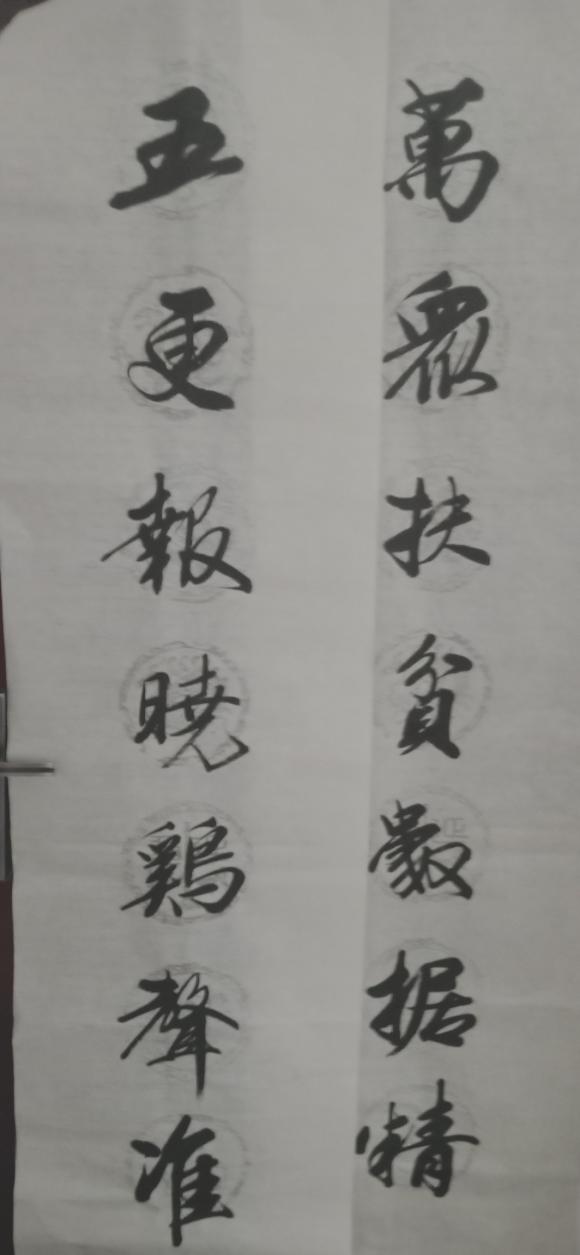 萬衆扶貧數据精
五更報曉鷄聲准